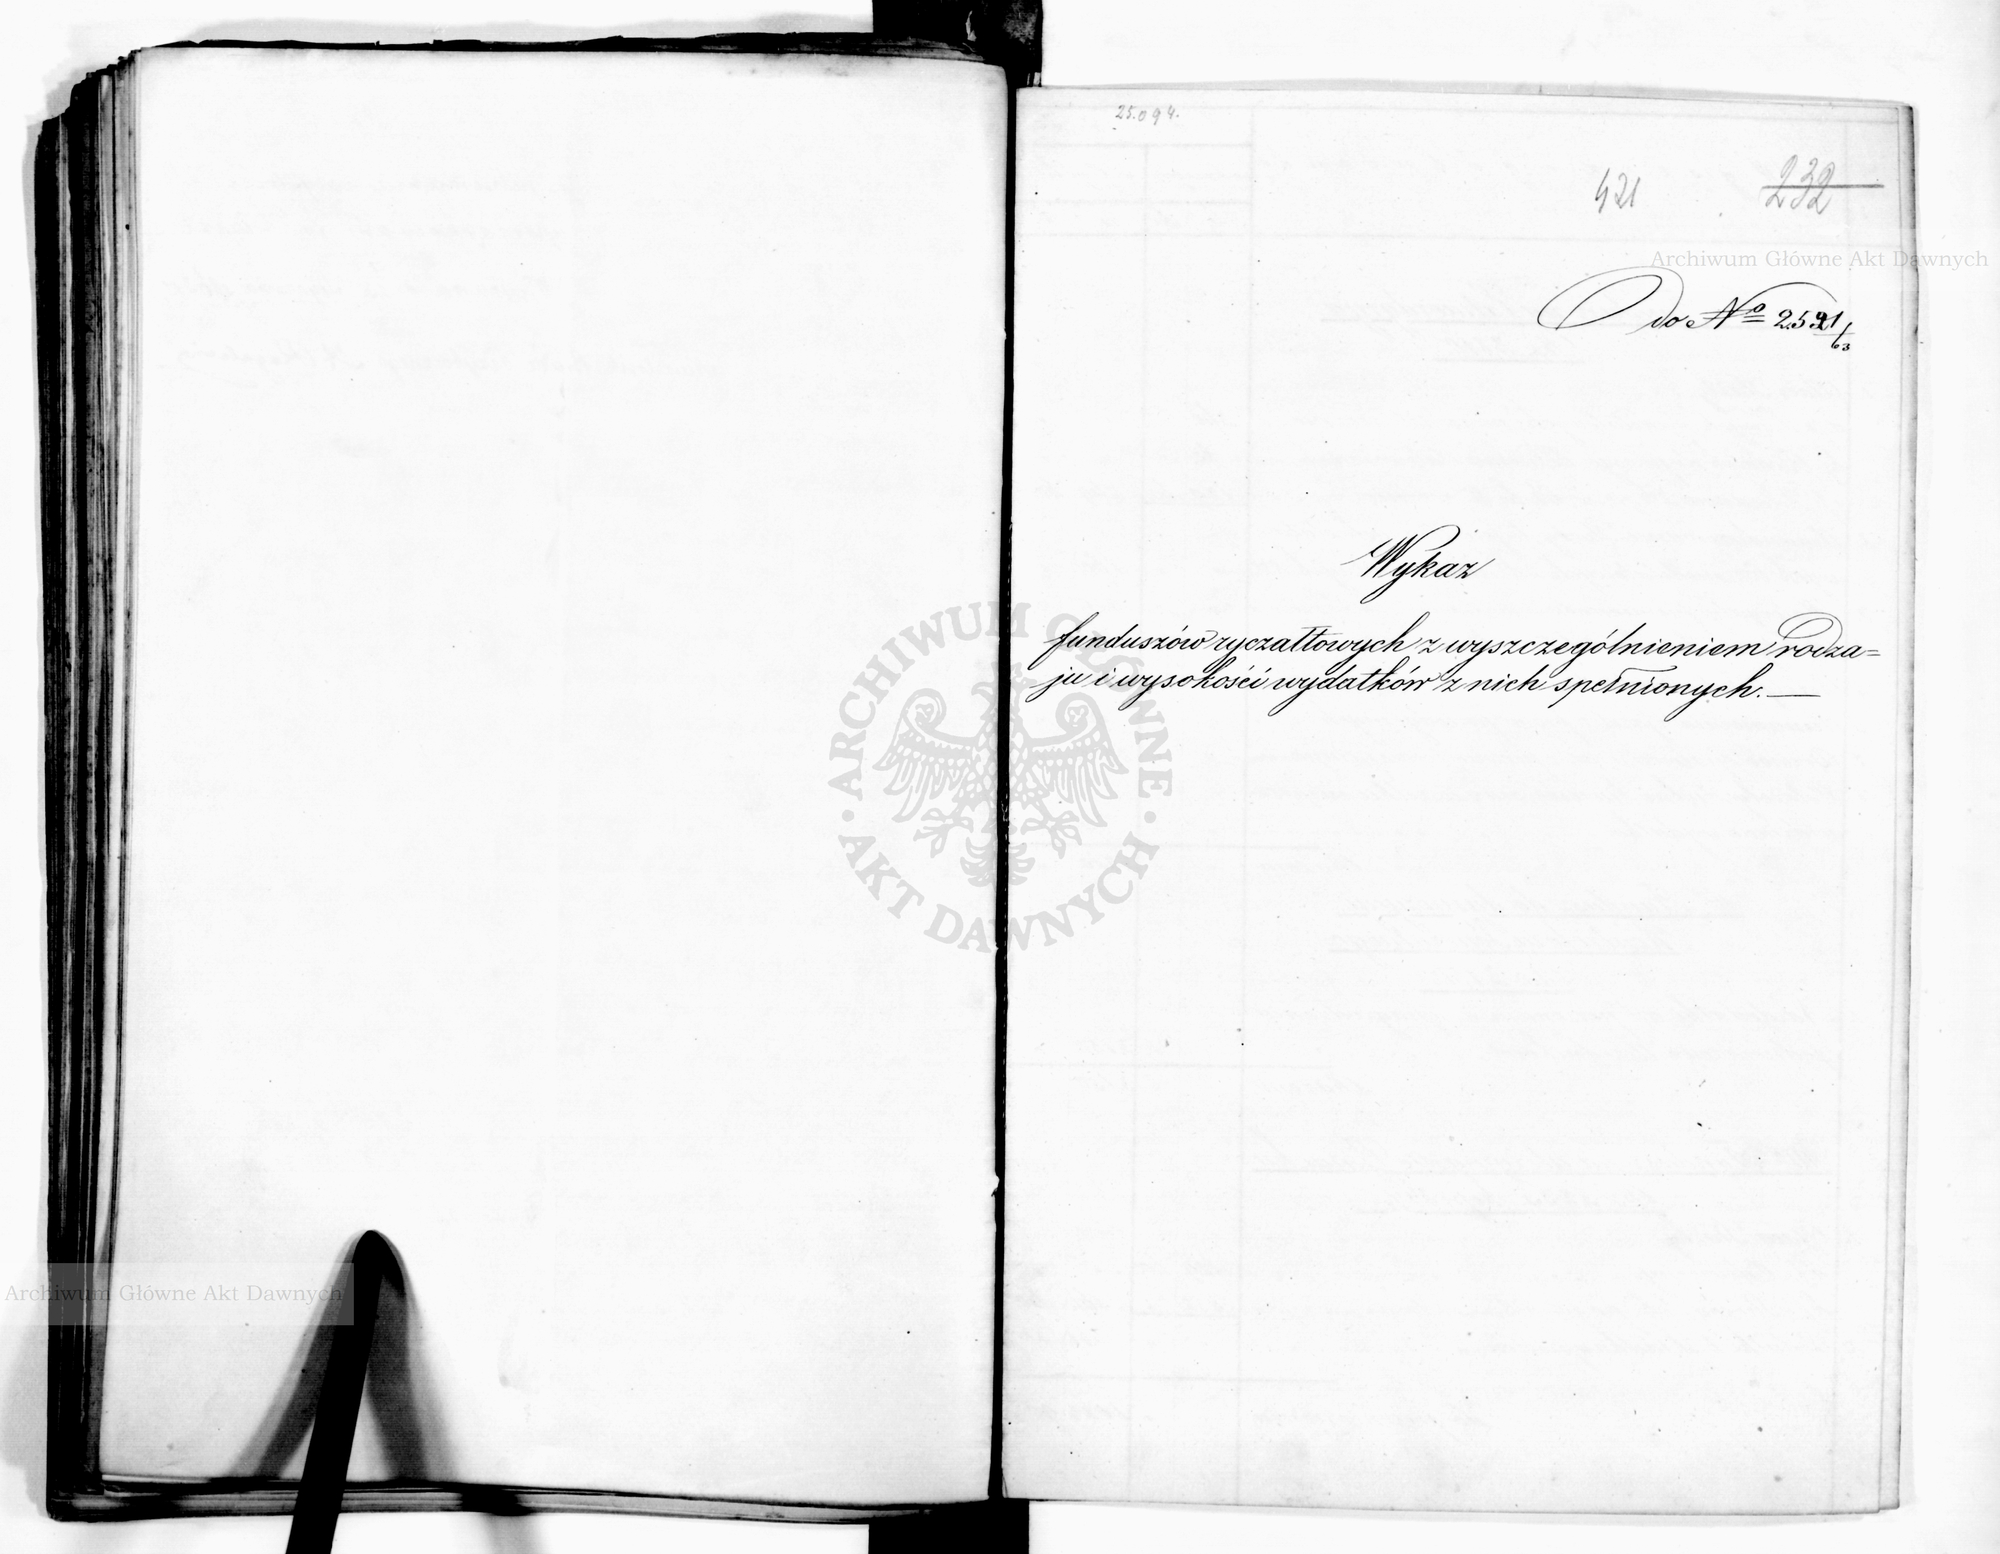 25.094.
421 232
Archiwum Główne Akt Dawnych
do No 2591/63
Wykaz
funduszów ryczałtowych z wyszczególnieniem rodza=
ju i wysokości wydatków z nich spełnionych.—
ARCHIWUM GŁÓWNE
AKT DAWNYCH
Archiwum Główne Akt Dawnych